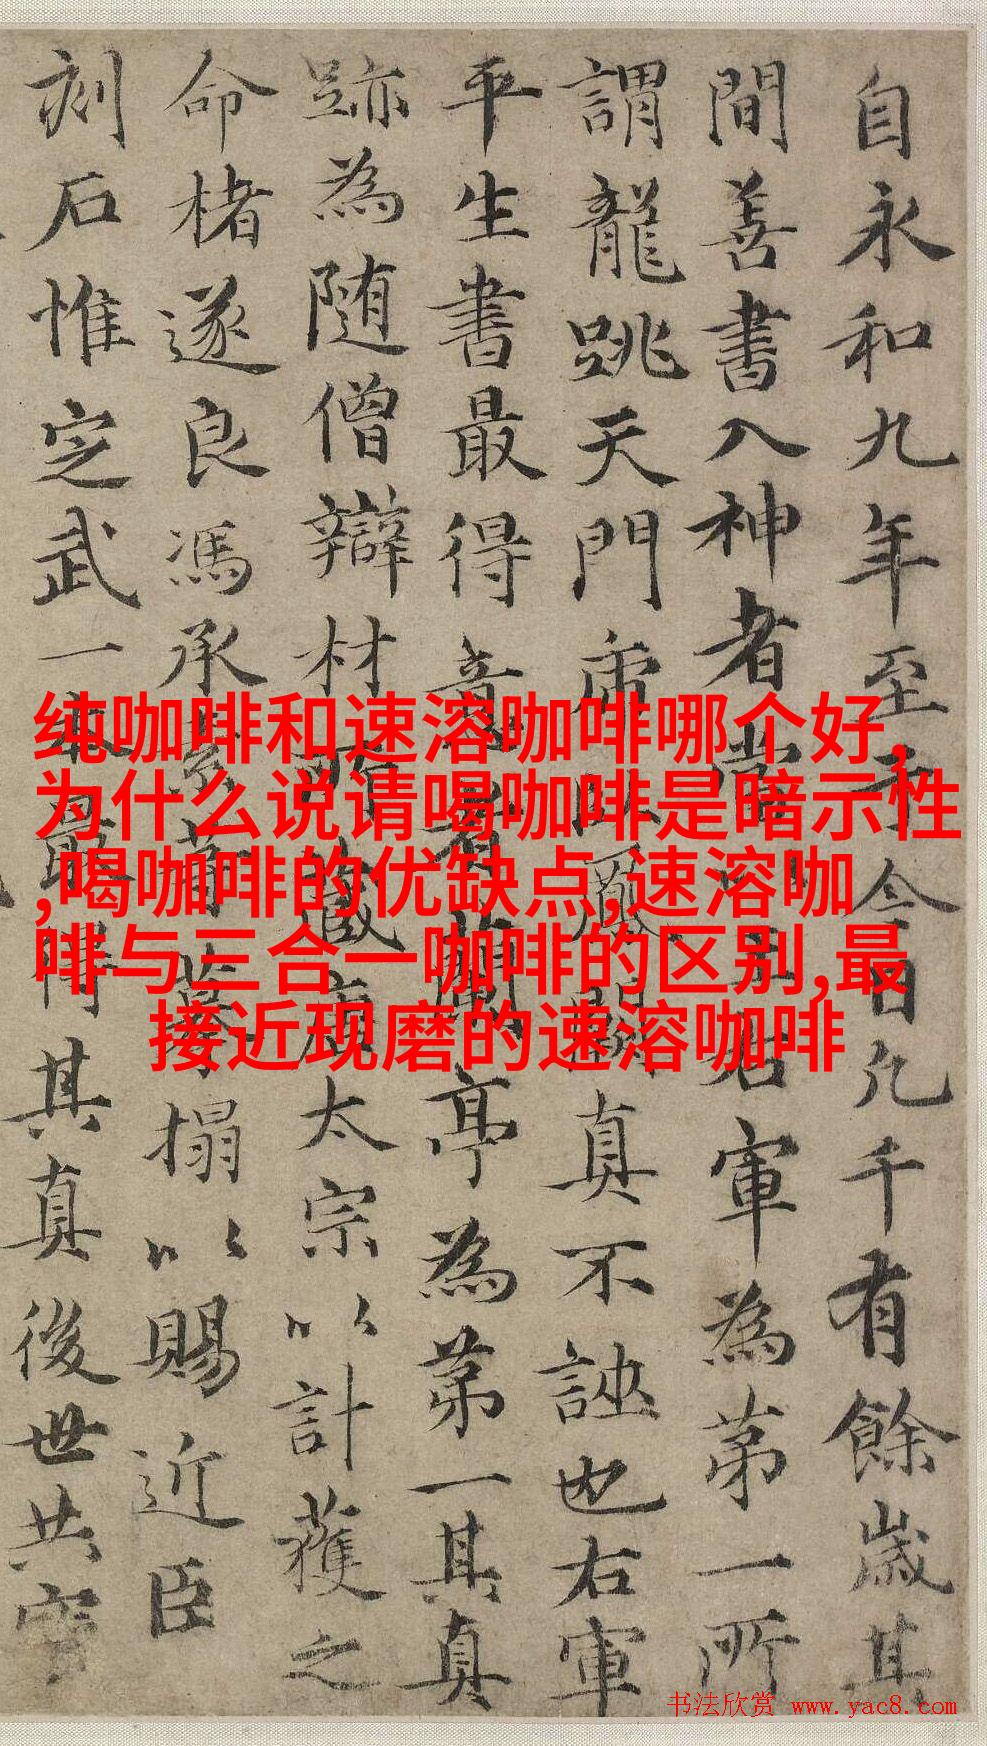 自永和九年至于今日凡千有餘歲其
間善書入神者當右軍為第一所
謂龍跳天門虎卧鳳閣真不誣也右軍
平生書最得意者蘭亭為第一其真
跡為随僧辯材所藏唐太宗以計獲之
命楮遂良馮承素等搨以賜近臣
刻石惟定武一本最得其真後世共寳
纯咖啡和速溶咖啡哪个好,
为什么说请喝咖啡是暗示性
,喝咖啡的优缺点,速溶咖
啡与三合一咖啡的区别,最
接近现磨的速溶咖啡
书法欣赏 www.yac8.com